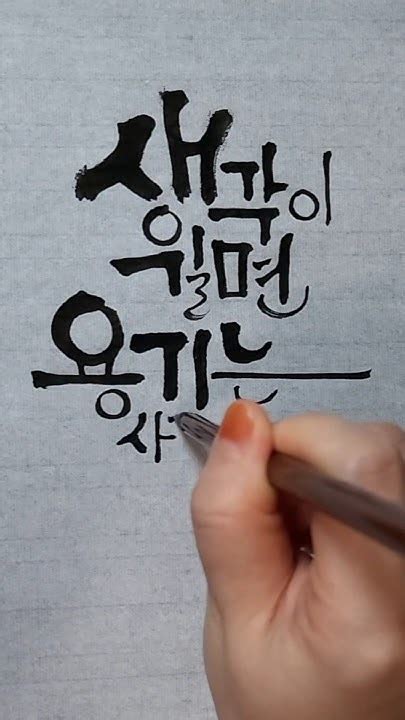 생각이
길면
용기는
사